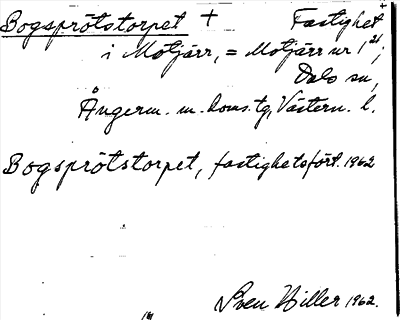 Bogsprötstorpet + Fastighet
i Motjärr, = Motjärr nr 1²¹;
Dals sn,
Ångerm. m. doms.tg, Västern. l.
Bogsprötstorpet, fastighetsfört. 1962
Sven Hiller 1962.